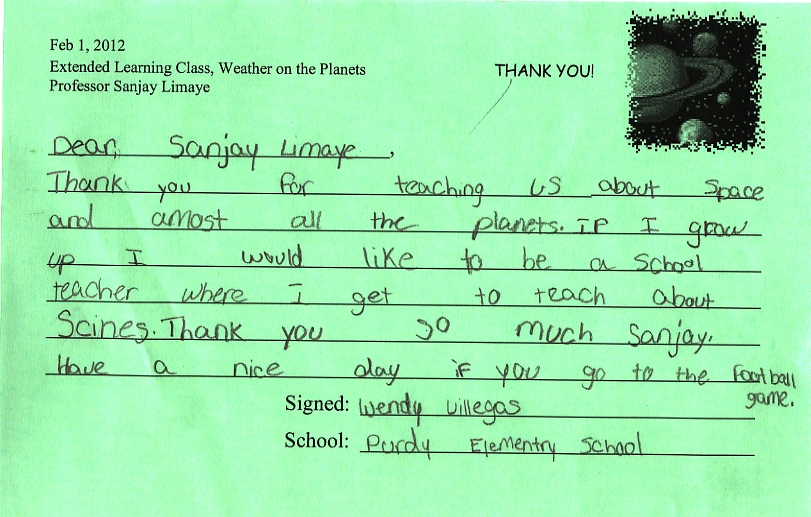 Feb 1, 2012
Extended Learning Class, Weather on the Planets
Professor Sanjay Limaye
THANK YOU!
Dear, Sanjay Limaye,
Thank you for teaching us about Space
and amost all the planets. if I grow
up I would like to be a School
teacher where I get to teach about
Scines. Thank you so much Sanjay.
Have a nice day if you go to the football
game.
Signed: Wendy Villegas
School: Purdy Elementry School